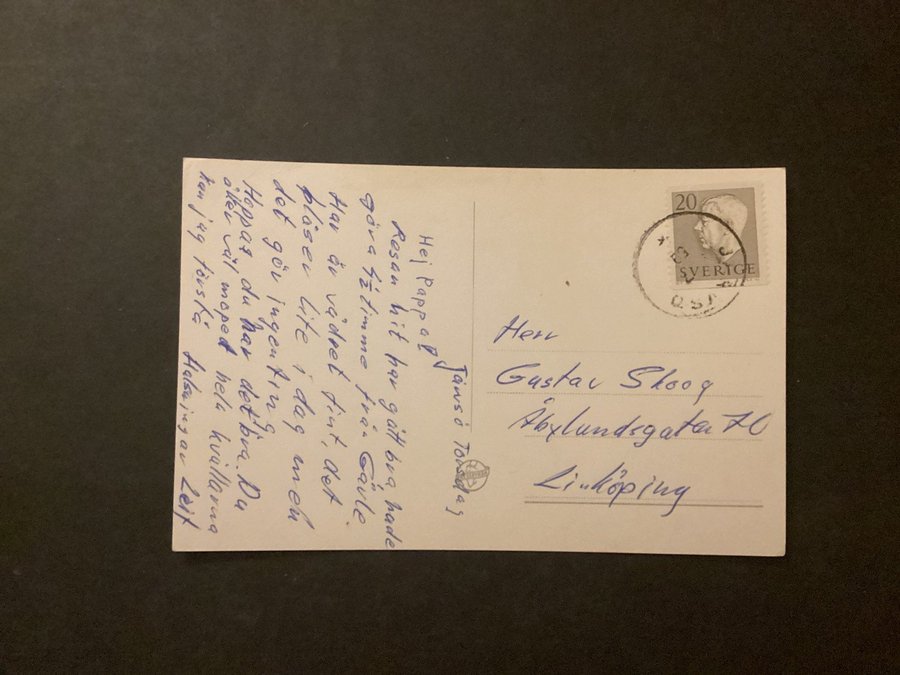 Järvsö Torsdag
Hej Pappa!
Resan hit har gått bra, hade
göra 1½ timme från Gävle.
Här är vädret fint, det
blåser lite i dag men
det gör ingenting.
Hoppas du har det bra. Du
åker väl moped hela kvällarna
kan jag förstå Hälsningar Leif
20
SVERIGE
Herr
Gustav Skoog
Åbylundsgatan 70
Linköping